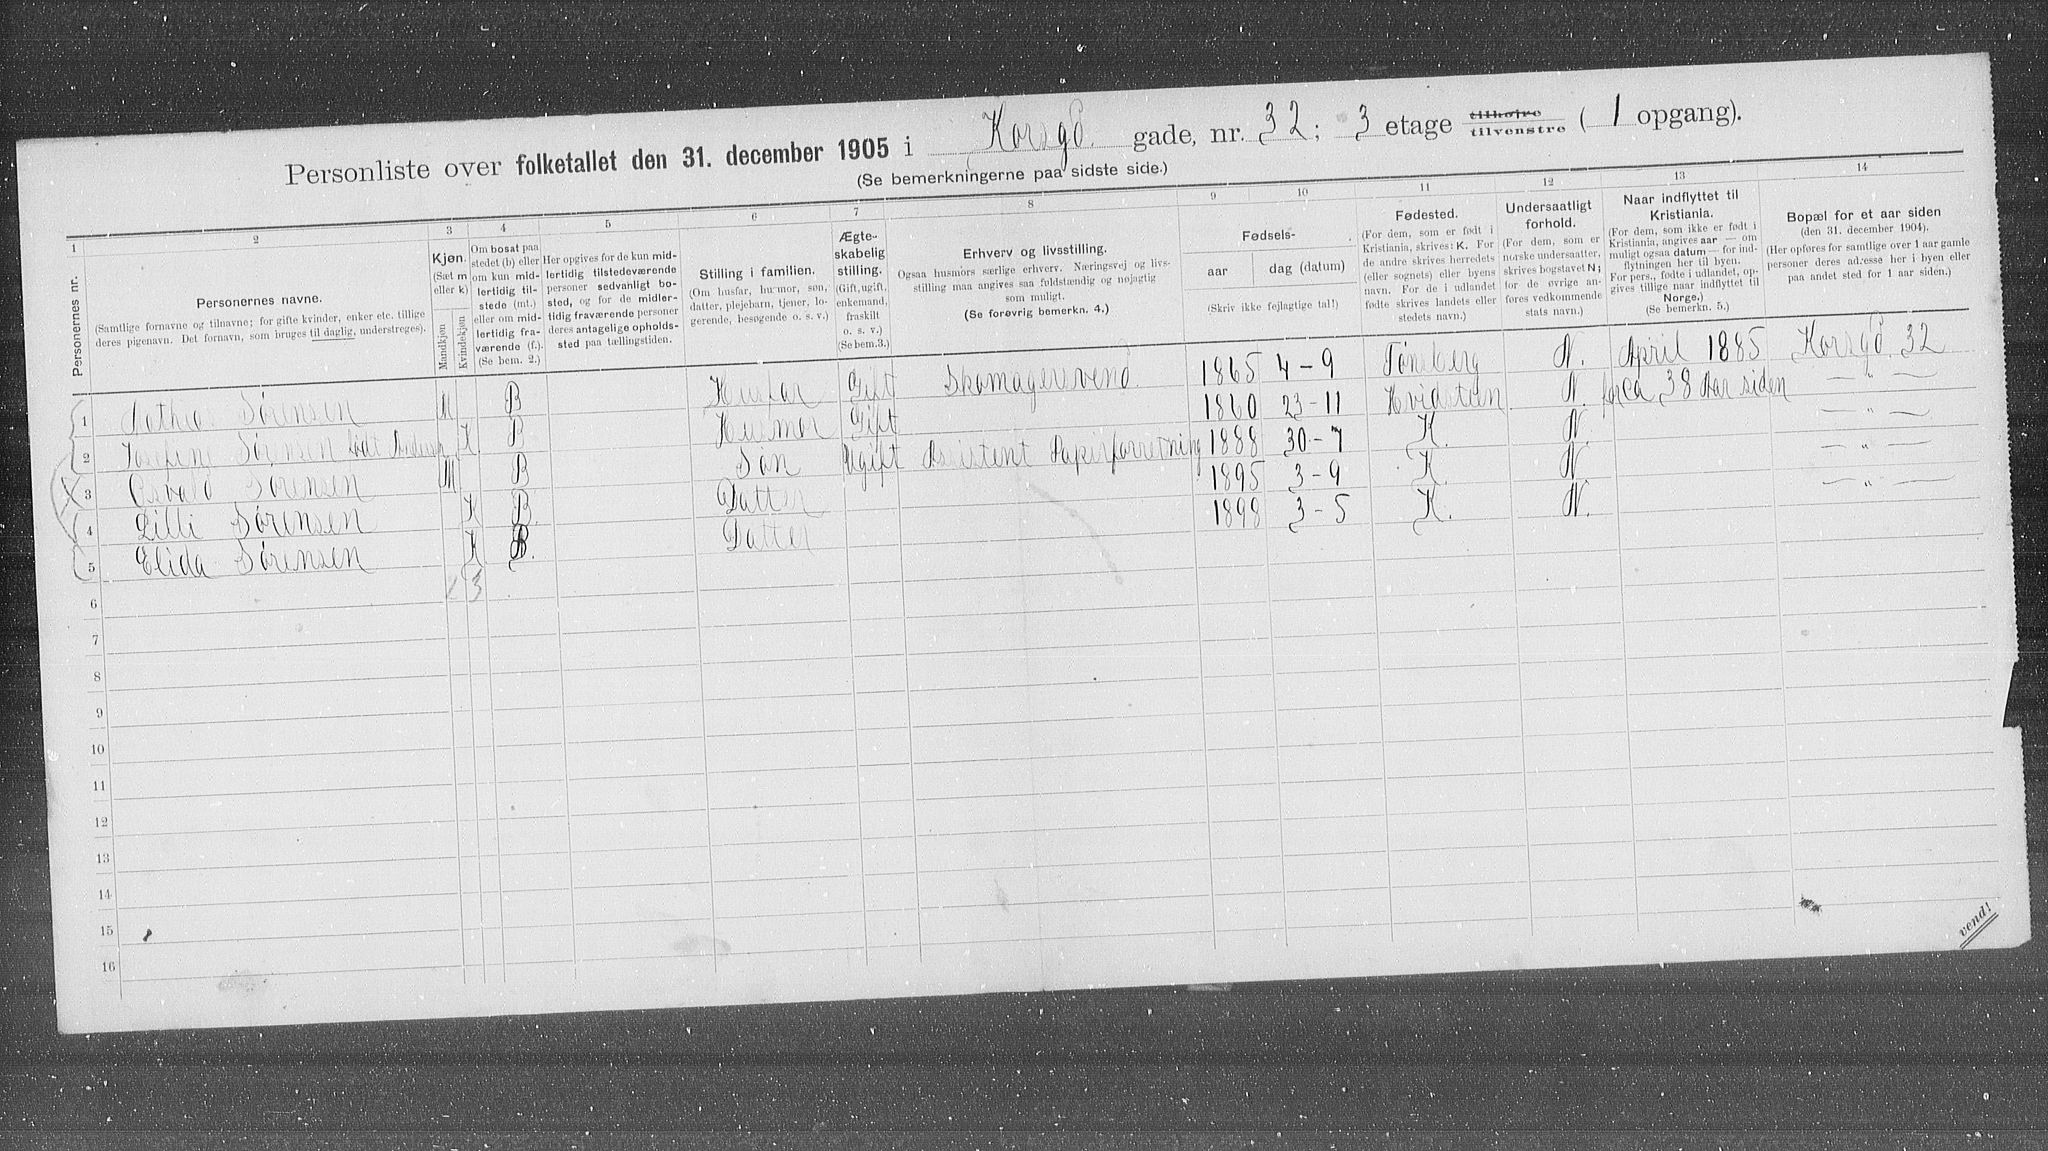 Personliste over folketallet den 31. december 1905 i Korsgd. gade, nr. 32; 3 etage tilhøire tilvenstre (1 opgang).
(Se bemerkningerne paa sidste side.)
1 2 3 4 5 6 7 8 9 10 11 12 13 14
Personernes nr.
Personernes navne.
(Samtlige fornavne og tilnavne; for gifte kvinder, enker etc. tillige
deres pigenavn. Det fornavn, som bruges til daglig, understreges).
Kjøn.
(Sæt m
eller k)
Mandkjøn
Kvindekjøn
Om bosat paa
stedet (b) eller
om kun mid-
lertidig til-
stede (mt.)
eller om mid-
lertidig fra-
værende (f.).
(Se bem. 2.)
Her opgives for de kun mid-
lertidig tilstedeværende
personer sedvanligt bo-
sted, og for de midler-
tidig fraværende personer
deres antagelige opholds-
sted paa tællingstiden.
Stilling i familien.
(Om husfar, husmor, søn,
datter, plejebarn, tjener, lo-
gerende, besøgende o. s. v.)
Ægte-
skabelig
stilling.
(Gift, ugift,
enkemand,
fraskilt
o. s. v.)
(Se bem.3.)
Erhverv og livsstilling.
Ogsaa husmors særlige erhverv. Næringsvej og livs-
stilling maa angives saa fuldstændig og nøjagtig
som muligt.
(Se forøvrig bemerkn. 4.)
Fødsels-
aar dag (datum)
(Skriv ikke fejlagtige tal!)
Fødested.
(For dem, som er født i
Kristiania, skrives: K. For
de andre skrives herredets
(eller sognets) eller byens
navn. For de i udlandet
fødte skrives landets eller
stedets navn.)
Undersaatligt
forhold.
(For dem, som er
norske undersaatter,
skrives bogstavet N;
for de øvrige an-
føres vedkommende
stats navn.)
Naar indflyttet til
Kristiania.
(For dem, som ikke er født i
Kristiania, angives aar — om
muligt ogsaa datum — for ind-
flytningen her til byen.
For pers., fødte i udlandet, op-
gives tillige naar indflyttet til
Norge.)
(Se bemerkn. 5.)
Bopæl for et aar siden
(den 31. december 1904).
(Her opføres for samtlige over 1 aar gamle
personer deres adresse her i byen eller
paa andet sted for 1 aar siden.)
1 Sørensen M B Husfar Gift Skomagersvend. 1865 4-9 Tønsberg N. April 1885 Korsgd. 32
2 Josefine Sørensen født Andersen K B Husmor Gift 1860 23-11 Hvidsteen N. ca 38 Aar siden — " —
3 Osvald Sørensen M B Søn Ugift Assistent Papirforretning 1888 30-7 K. N. — " —
4 Lilli Sørensen K B. Datter 1895 3-9 K. N — " —
5 Elida Sørensen K B. Datter 1898 3-5 K. N. — " —
6 2 3
7
8
9
10
11
12
13
14
15
16
vend!